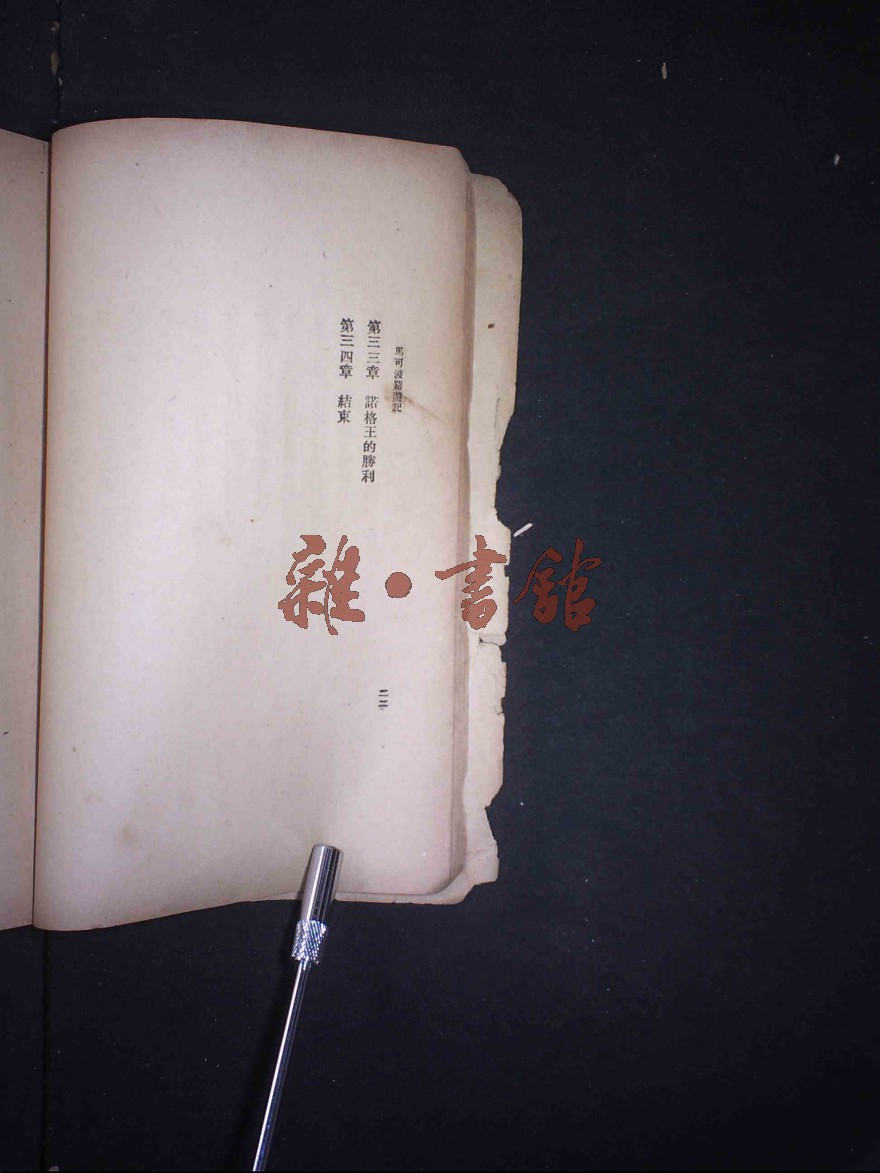 馬可波羅遊記
第三三章　諾格王的勝利
第三四章　結束
二二
雜·書館